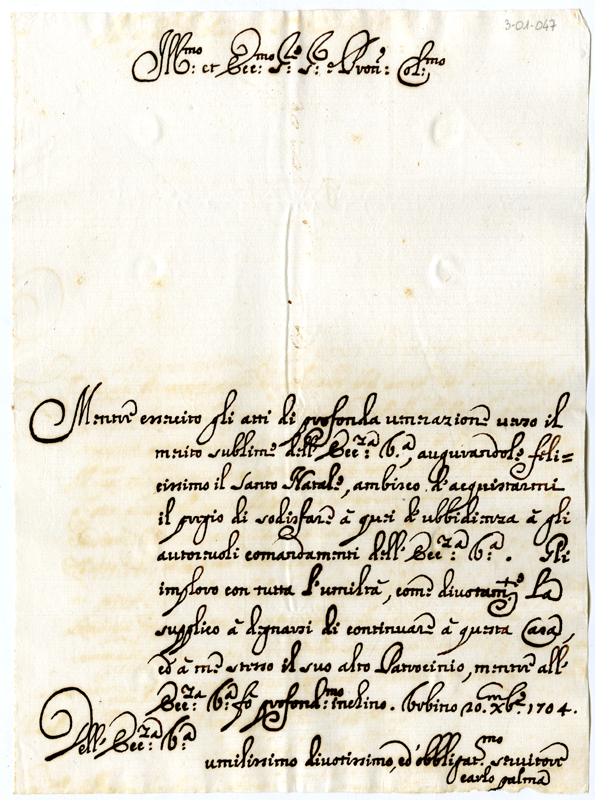 3-01-047
Ill.mo et Ecc.mo Sig.re Sig.re e Pron: Col.mo
Mentre essercito gli atti di profonda venerazione verso il
merito sublime dell' Ecc.za V.a, augurandole feli=
cissimo il Santo Natale, ambisco d'acquistarmi
il pregio di sodisfare à quei d'ubbidienza à gli
autorevoli comandamenti dell' Ecc.za V.a. Gli
imploro con tutta l'umiltà, come divotam.te La
supplico à degnarsi di continuare à questa Casa,
ed à me stesso il suo alto Patrocinio, mentre all'
Ecc.za V.a fò profond.mo inchino. Urbino 20. Xmbre 1704.
Dell' Ecc.za V.a
umilissimo divotissimo, ed obbligat.mo servitore
Carlo Palma